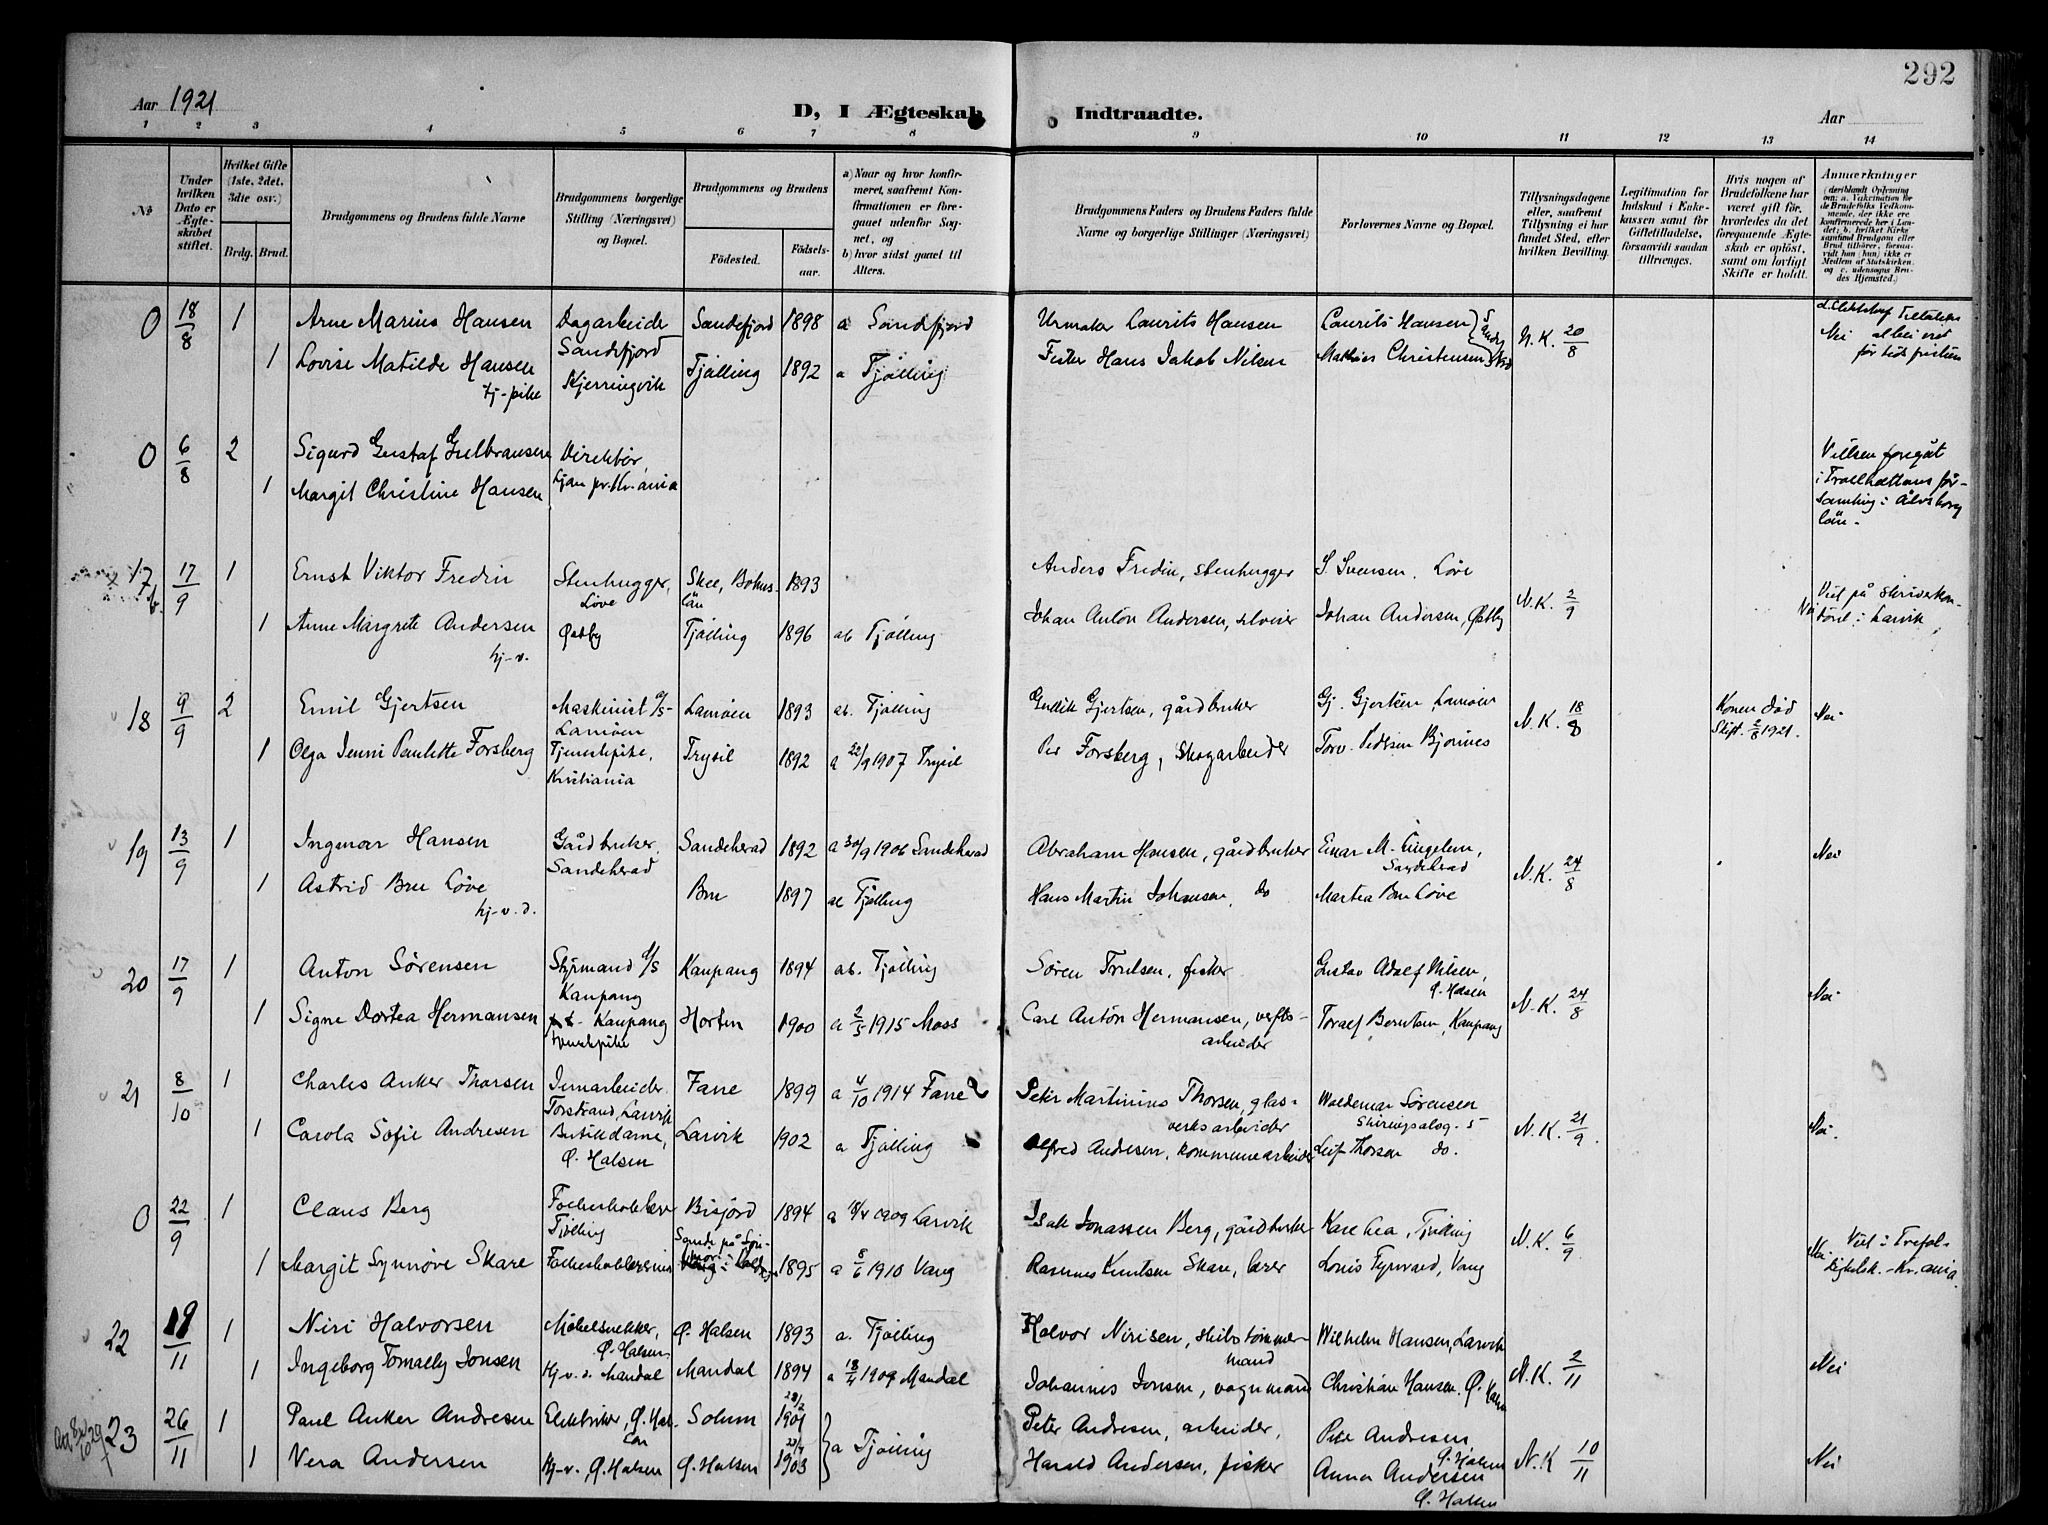 292
Aar 1921
D, I Ægteskab Indtraadte.
Aar
1 2 3 4 5 6 7 8 9 10 11 12 13 14
No
Under hvilken Dato er Ægteskabet stiftet.
Hvilket Gifte (1ste, 2det, 3die osv.)
Brdg. Brud.
Brudgommens og Brudens fulde Navne
Brudgommens borgerlige Stilling (Næringsvei) og Bopæl.
Brudgommens og Brudens
Fødested.
Fødselsaar.
a) Naar og hvor konfirmeret, saafremt Konfirmationen er foregaaet udenfor Sognet, og
b) hvor sidst gaaet til Alters.
Brudgommens Faders og Brudens Faders fulde Navne og borgerlige Stillinger (Næringsvei)
Forlovernes Navne og Bopæl.
Tillysningsdagene eller, saafremt Tillysning ei har fundet Sted, efter hvilken Bevilling.
Legitimation for Indskud i Enkekassen samt for Giftetilladelse, forsaavidt saadan tiltrænges.
Hvis nogen af Brudefolkene har været gift før, hvorledes da det foregaaende Ægteskab er opløst, samt om lovligt Skifte er holdt.
Anmærkninger
(deriblandt Oplysning om: a. Vakcination for de Brudefolks Vedkommende, der ikke ere konfirmerede her i Landet; b. hvilket Kirkesamfund Brudgom eller Brud tilhører, forsaavidt han (hun) ikke er Medlem af Statskirken og c. udensogns Brudes Hjemsted.)
0 18/8 1 Arne Marius Hansen Dagarbeider Sandefjord Sandefjord 1898 a Sandefjord Urmaker Laurits Hansen Laurits Hansen N.K. 20/8 Nei
1 Lovise Matilde Hansen Kjerringvik Tjølling 1892 a Tjølling Fisker Hans Jakob Nilsen Mathias Christensen
hj-pike
0 6/8 2 Sigurd Gustaf Gulbransen Direktør, Vielsen foregåt
1 Margit Christine Hansen Ljan pr. Kr.ania i Trollhättans församling i Älvsborg län.
17 b. 17/9 1 Ernst Viktor Fredin Stenhugger, Løve Skee, Bohuslän 1893 Anders Fredin, stenhugger S. Svensen, Løve N.K. 2/9 Nei Viet på skriverkontoret i Larvik
1 Anne Margrete Andersen Østby Tjølling 1896 ab Tjølling Johan Anton Andersen, selveier Johan Andersen, Østby
hj-v.
18 9/9 2 Emil Gjertsen Maskinist d/s- Lamøen Lamøen 1893 ab. Tjølling Gullik Gjertsen, gårdbruker Gj. Gjertsen, Lamøen N.K. 18/8 Konen død Skift. 2/8 1921. Nei
1 Olga Jenni Paulette Forsberg Tjenestepike, Kristiania Trysil 1892 a 22/9 1907 Trysil Per Forsberg, Skogarbeider Torv. Pedersen Bjønnes
19 13/9 1 Ingvar Hansen Gårdbruker, Sandeherad Sandeherad 1892 a 30/9 1906 Sandeherad Abraham Hansen, gårdbruker Einar M. Engelsen, Sandeherad N.K. 24/8 Nei
1 Astrid Bru Løve Bru 1897 ab Tjølling Hans Martin Johansen, do Martea Bru Løve
hj-v.d.
20 17/9 1 Anton Sørensen Styrmand d/s Kaupang Kaupang 1894 ab. Tjølling Søren Trulsen, fisker Gustav Adolf Nilsen, Ø. Halsen N.K. 24/8 Nei
1 Signe Dortea Hermansen p.t. Kaupang tjenestepike Horten 1900 a 2/5 1915 Moss Carl Anton Hermansen, verftsarbeider Toralf Berntsen, Kaupang
21 8/10 1 Charles Anker Thorsen Jernarbeider Torstrand, Larvik Fane 1899 a 4/10 1914 Fane Peter Martinius Thorsen, glasverksarbeider Waldemar Sørensen N.K. 21/9. Nei.
1 Carola Sofie Andresen Butikdame, Ø. Halsen Larvik 1902 a Tjølling Alfred Andresen, kommunearbeider Leif Thorsen do.
0 22/9 1 Claus Berg Folkeskolelærer Tjølling Bisjord 1894 a 18/4 1909 Larvik Isak Jonassen Berg, gårdbruker Kåre Lea, Tjølling N.K. 6/9 Nei- Viet i Trefoldighetsk. - Kr.ania.
1 Margit Synnøve Skare Folkeskolelærerinne Sande på Sønmøre 1895 a 5/6 1910 Vang Rasmus Knutsen Skare, lærer Louis Tynvald, Vang
22 19/11 1 Niri Halvorsen Møbelsnekker, Ø. Halsen Ø. Halsen 1893 a. Tjølling Halvor Nirisen, skibstømmermand Wilhelm Hansen, Larvik N.K. 2/11 Nei
1 Ingeborg Tomally Jonsen Hj-v. d. Mandal Mandal 1894 a 18/4 1909 Mandal Johannes Jonsen, vognmand Christian Hansen, Ø. Halsen
23 26/11 1 Paul Anker Andresen Elektriker, Ø. Halsen Solum 28/2 1901 a Tjølling Peter Andresen, arbeider, Peter Andresen Ø. Halsen N.K 10/11 Nei
1 Vera Andersen Hj-v., Ø. Halsen Ø. Halsen 1903 Harald Andersen, fisker Anna Andersen Ø. Halsen